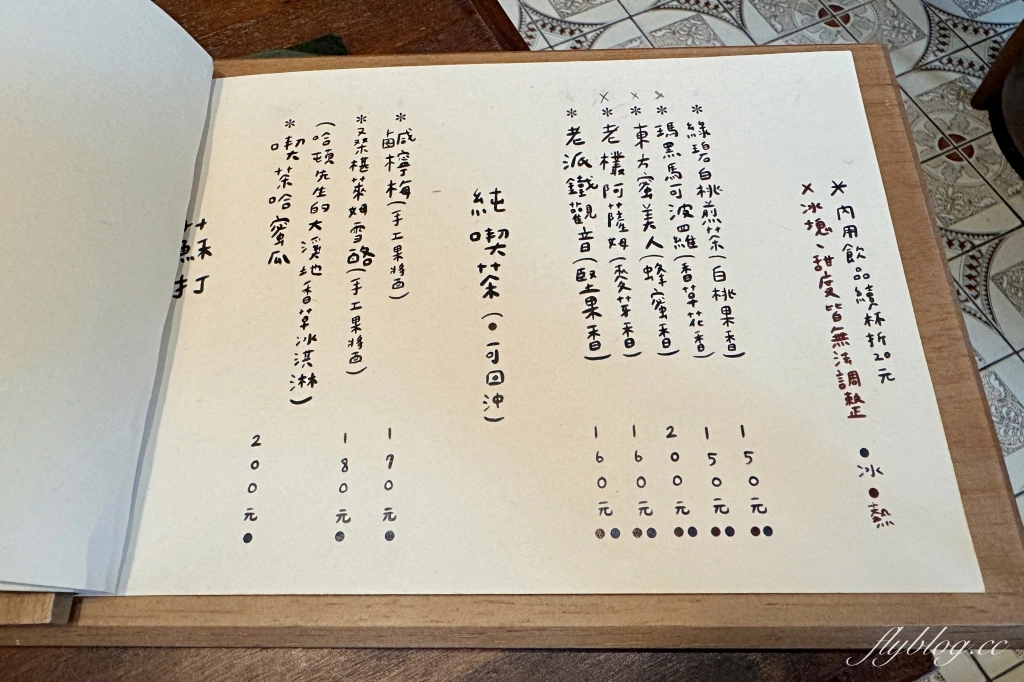 蘇打
*喫茶哈蜜瓜
(哈頓先生的大溪地香草冰淇淋)
200元●
*桑椹萊姆雪酪(手工果醬)
180元●
*鹹檸梅(手工果醬)
170元●
純喫茶(●可回沖)
*老派鐵觀音(堅果香)
160元●●
*老欉阿薩姆(麥芽香)
160元●●
*東方蜜美人(蜂蜜香)
200元●●
*瑪黑馬可波羅(香草花香)
150元●●
*綠碧白桃煎茶(白桃果香)
150元●●
×冰塊、甜度皆無法調整
*內用飲品續杯折20元
●冰●熱
flyblog.cc